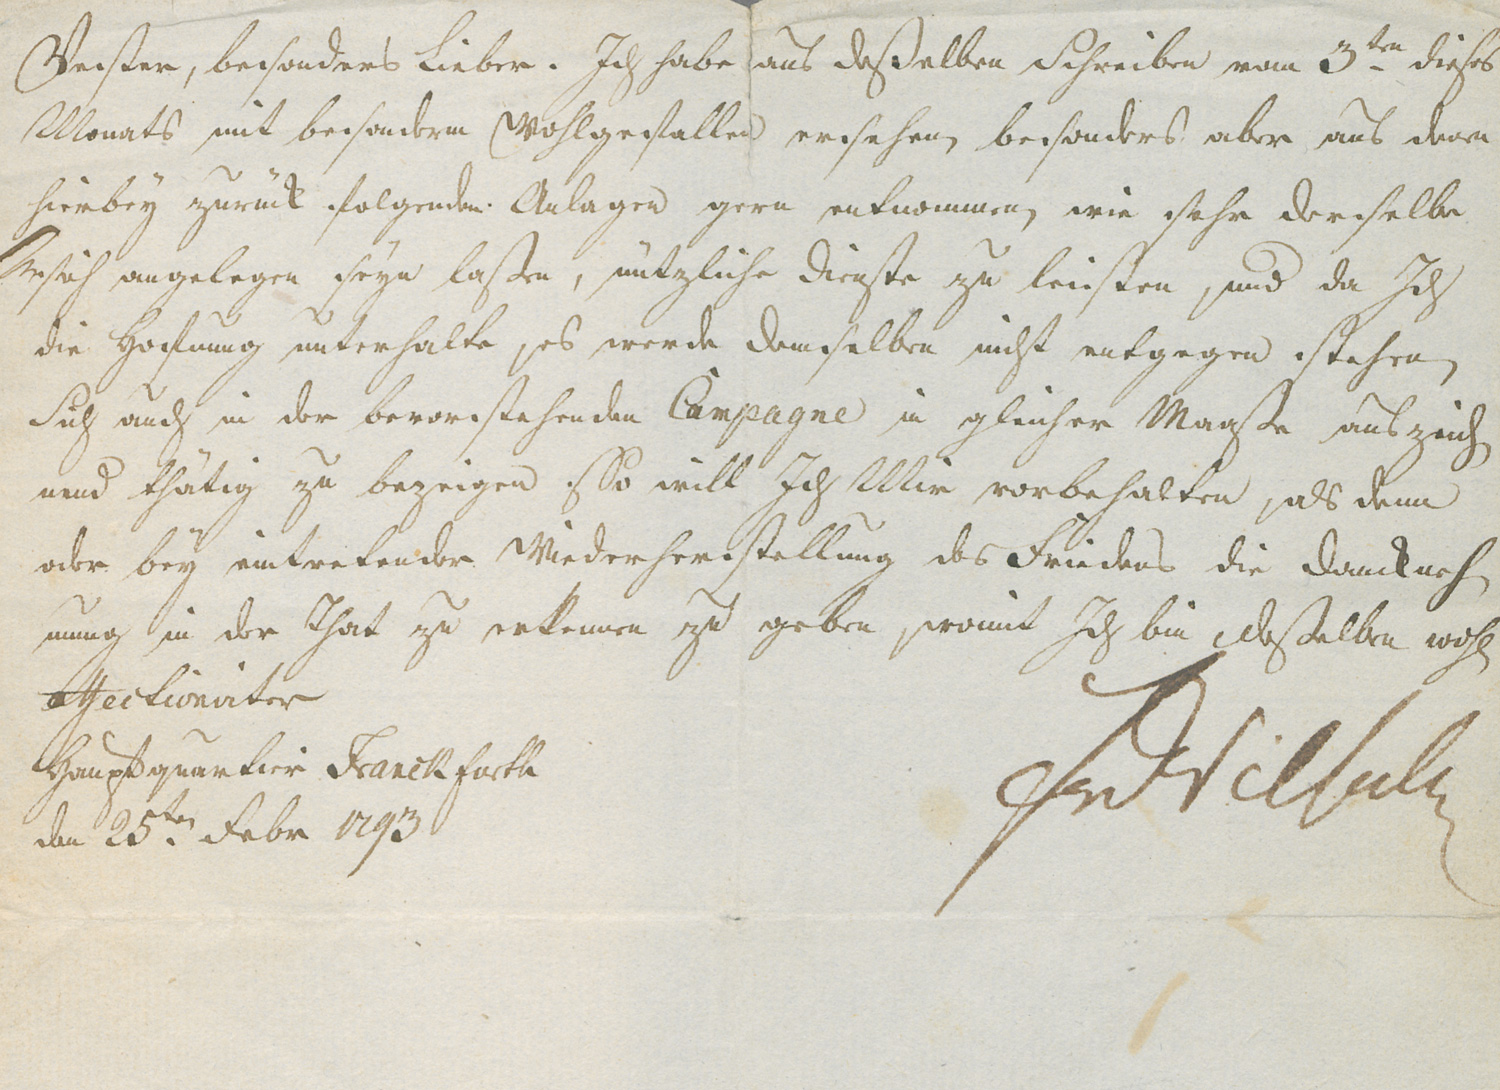 Vester, besonders Lieber. Ich habe aus deßelben Schreiben vom 3ten dieses
Monats mit besonderm Wohlgefallen ersehen, besonders aber aus denen
hierbey zurück folgenden Anlagen gern entnommen, wie sehr derselbe
sich angelegen seyn laßen, nützliche Dienste zu leisten, und da Ich
die Hofnung unterhalte, es werde demselben nicht entgegen stehen,
Sich auch in der bevorstehenden Campagne in gleicher Maaße auszeich
nend thätig zu bezeigen so will Ich Mir vorbehalten, als denn
oder bey eintretender Wiederherstellung des Friedens die Danckneh
mung in der That zu erkennen zu geben, womit Ich bin deßelben wohl
affectionirter
Hauptquartier Franckfurth
den 25ten Febr 1793
Fr Wilhelm